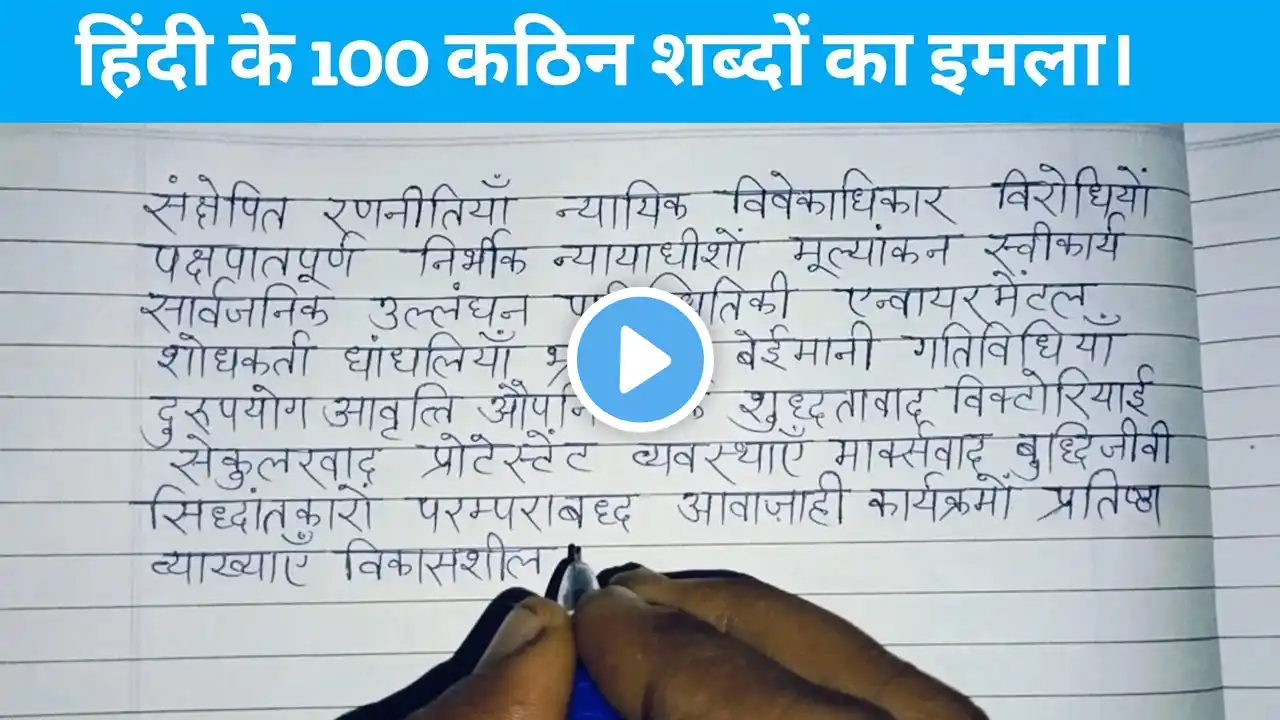 हिंदी के 100 कठिन शब्दों का इमला।
संक्षेपित रणनीतियाँ न्यायिक विवेकाधिकार विरोधियों
पक्षपातपूर्ण निर्भीक न्यायाधीशों मूल्यांकन स्वीकार्य
सार्वजनिक उल्लंघन एन्वायरमेंटल
शोधकर्ता धांधलियाँ बेईमानी गतिविधियाँ
दुरूपयोग आवृत्ति शुद्धतावाद विक्टोरियाई
सेकुलरवाद प्रोटेस्टेंट व्यवस्थाएँ मार्क्सवाद बुद्धिजीवी
सिद्धांतकारों परम्पराबद्ध आवाज़ाही कार्यक्रमों प्रतिष्ठा
व्याख्याएँ विकासशील